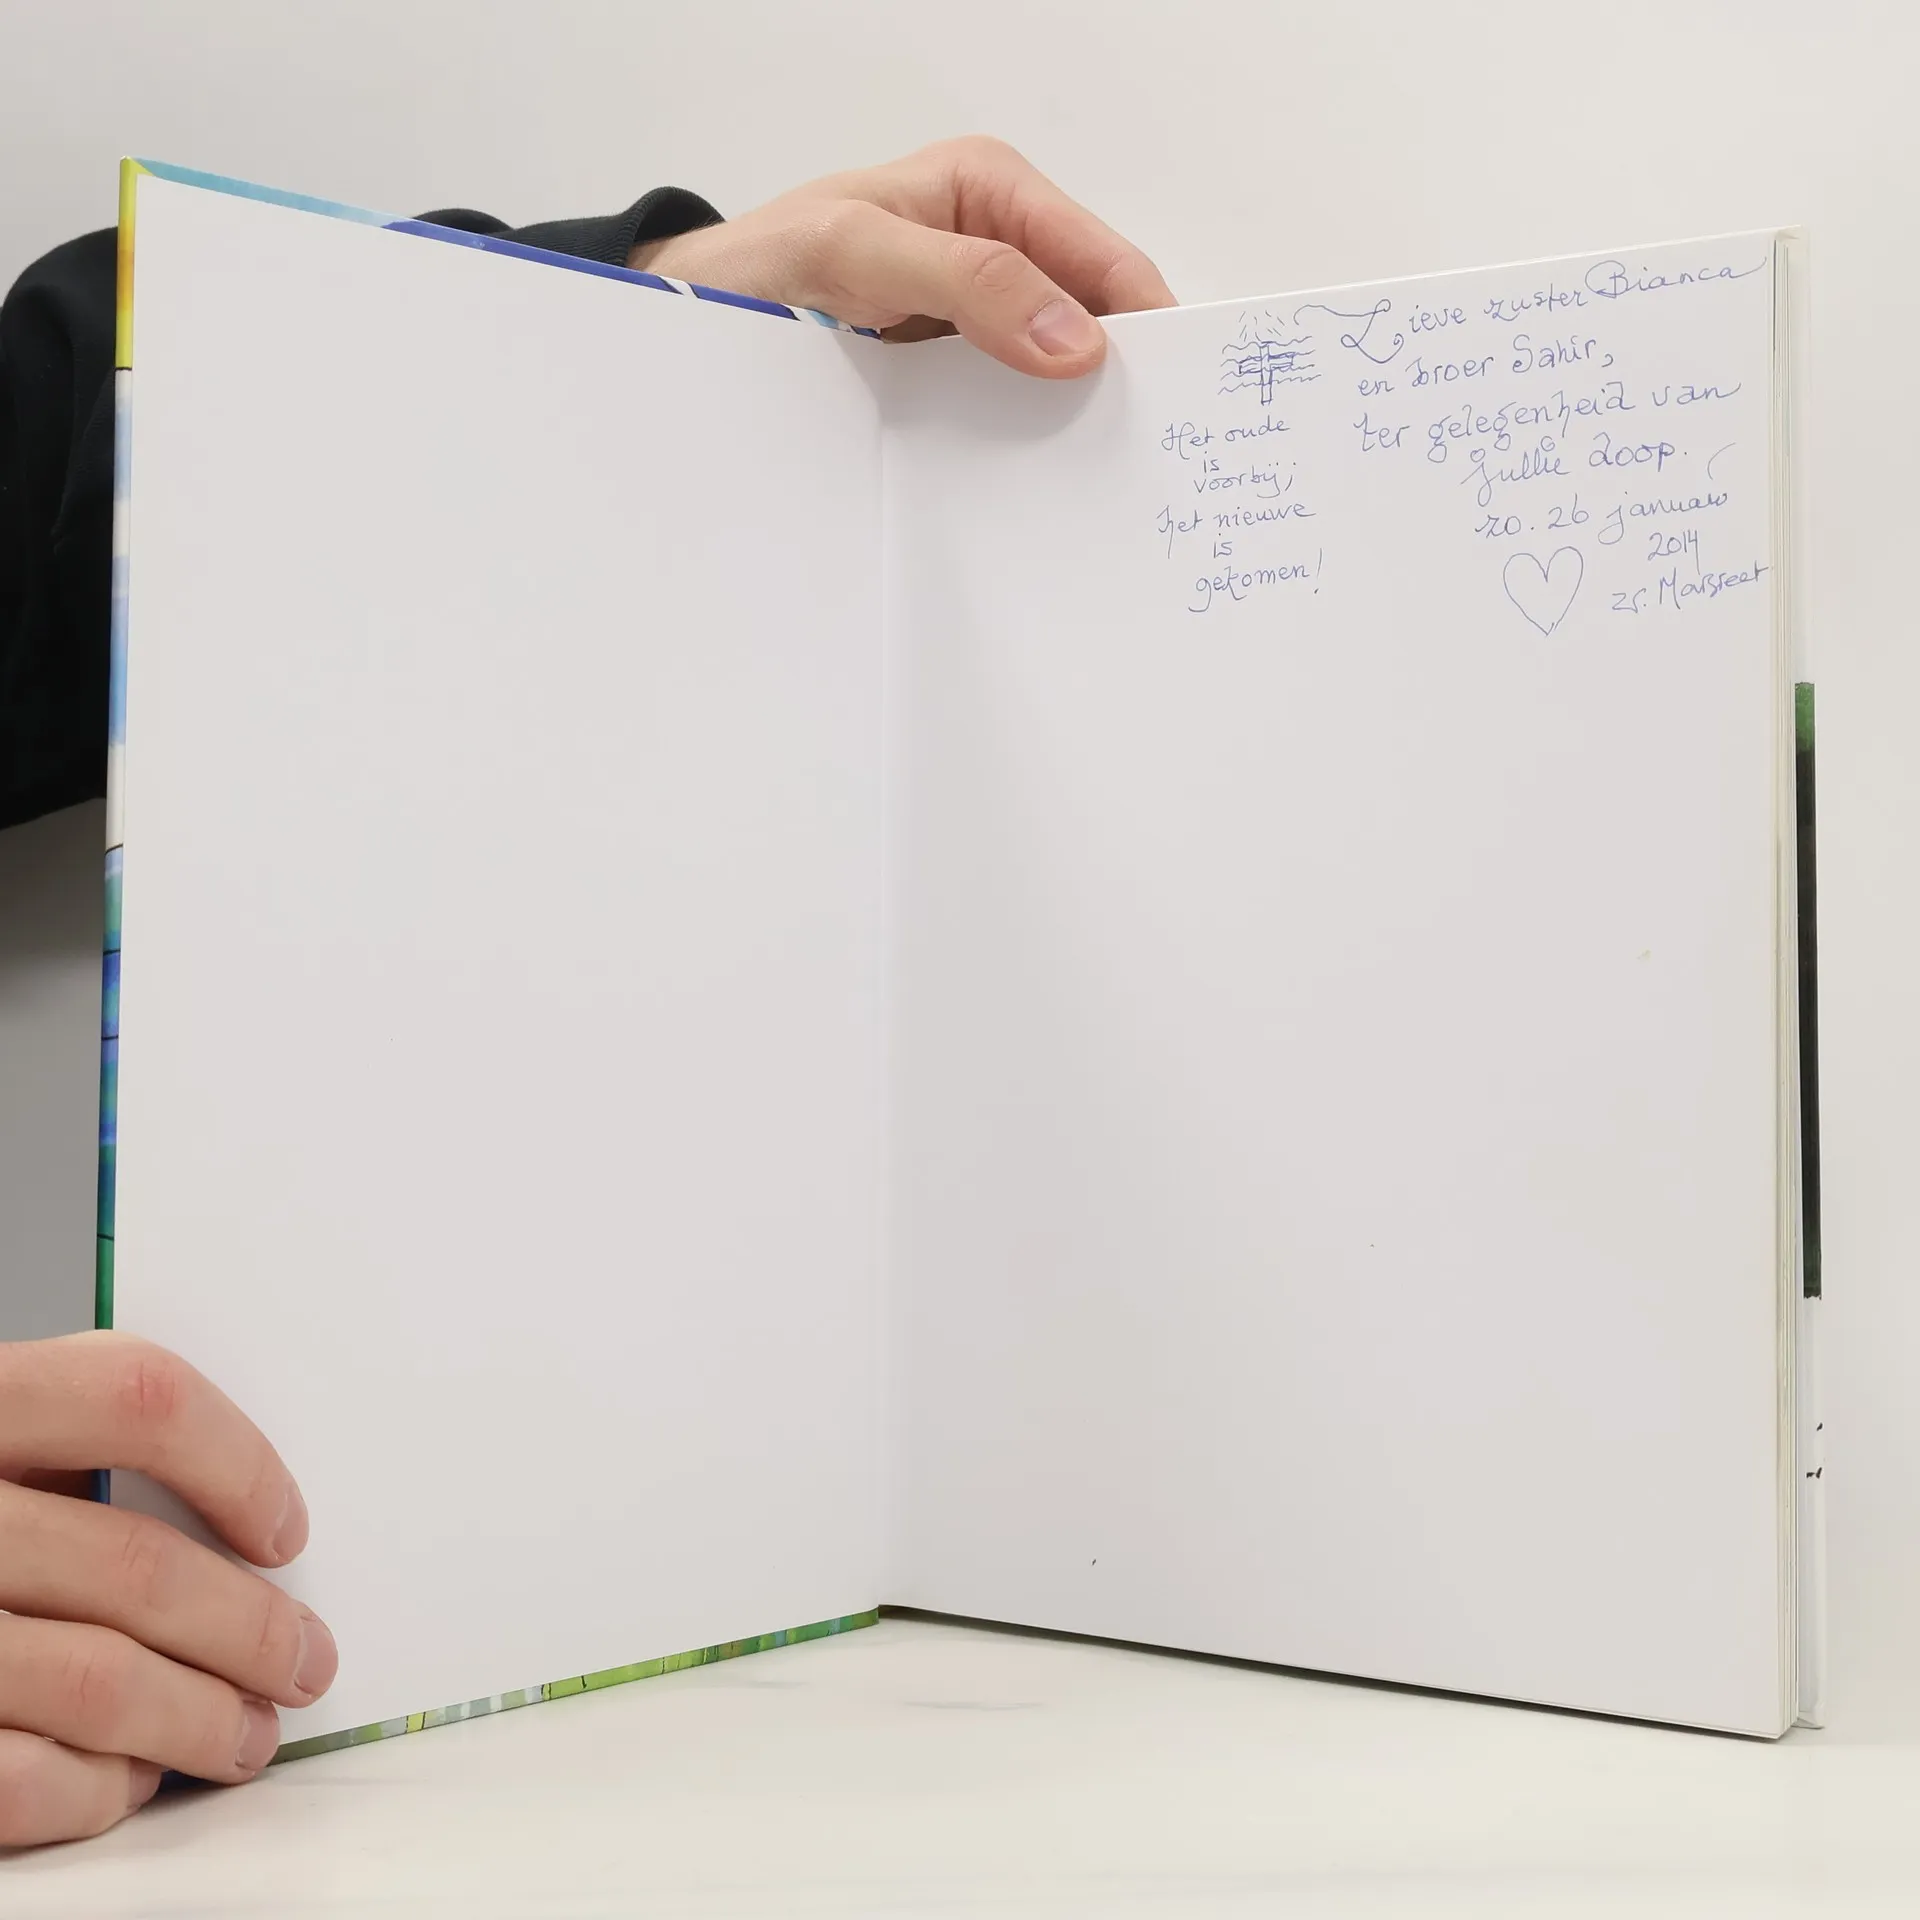 Lieve zuster Bianca
en broer Sahir,
ter gelegenheid van
jullie doop.
zo. 26 januari
2014
zr. Margreet
Het oude
is
voorbij;
het nieuwe
is
gekomen!